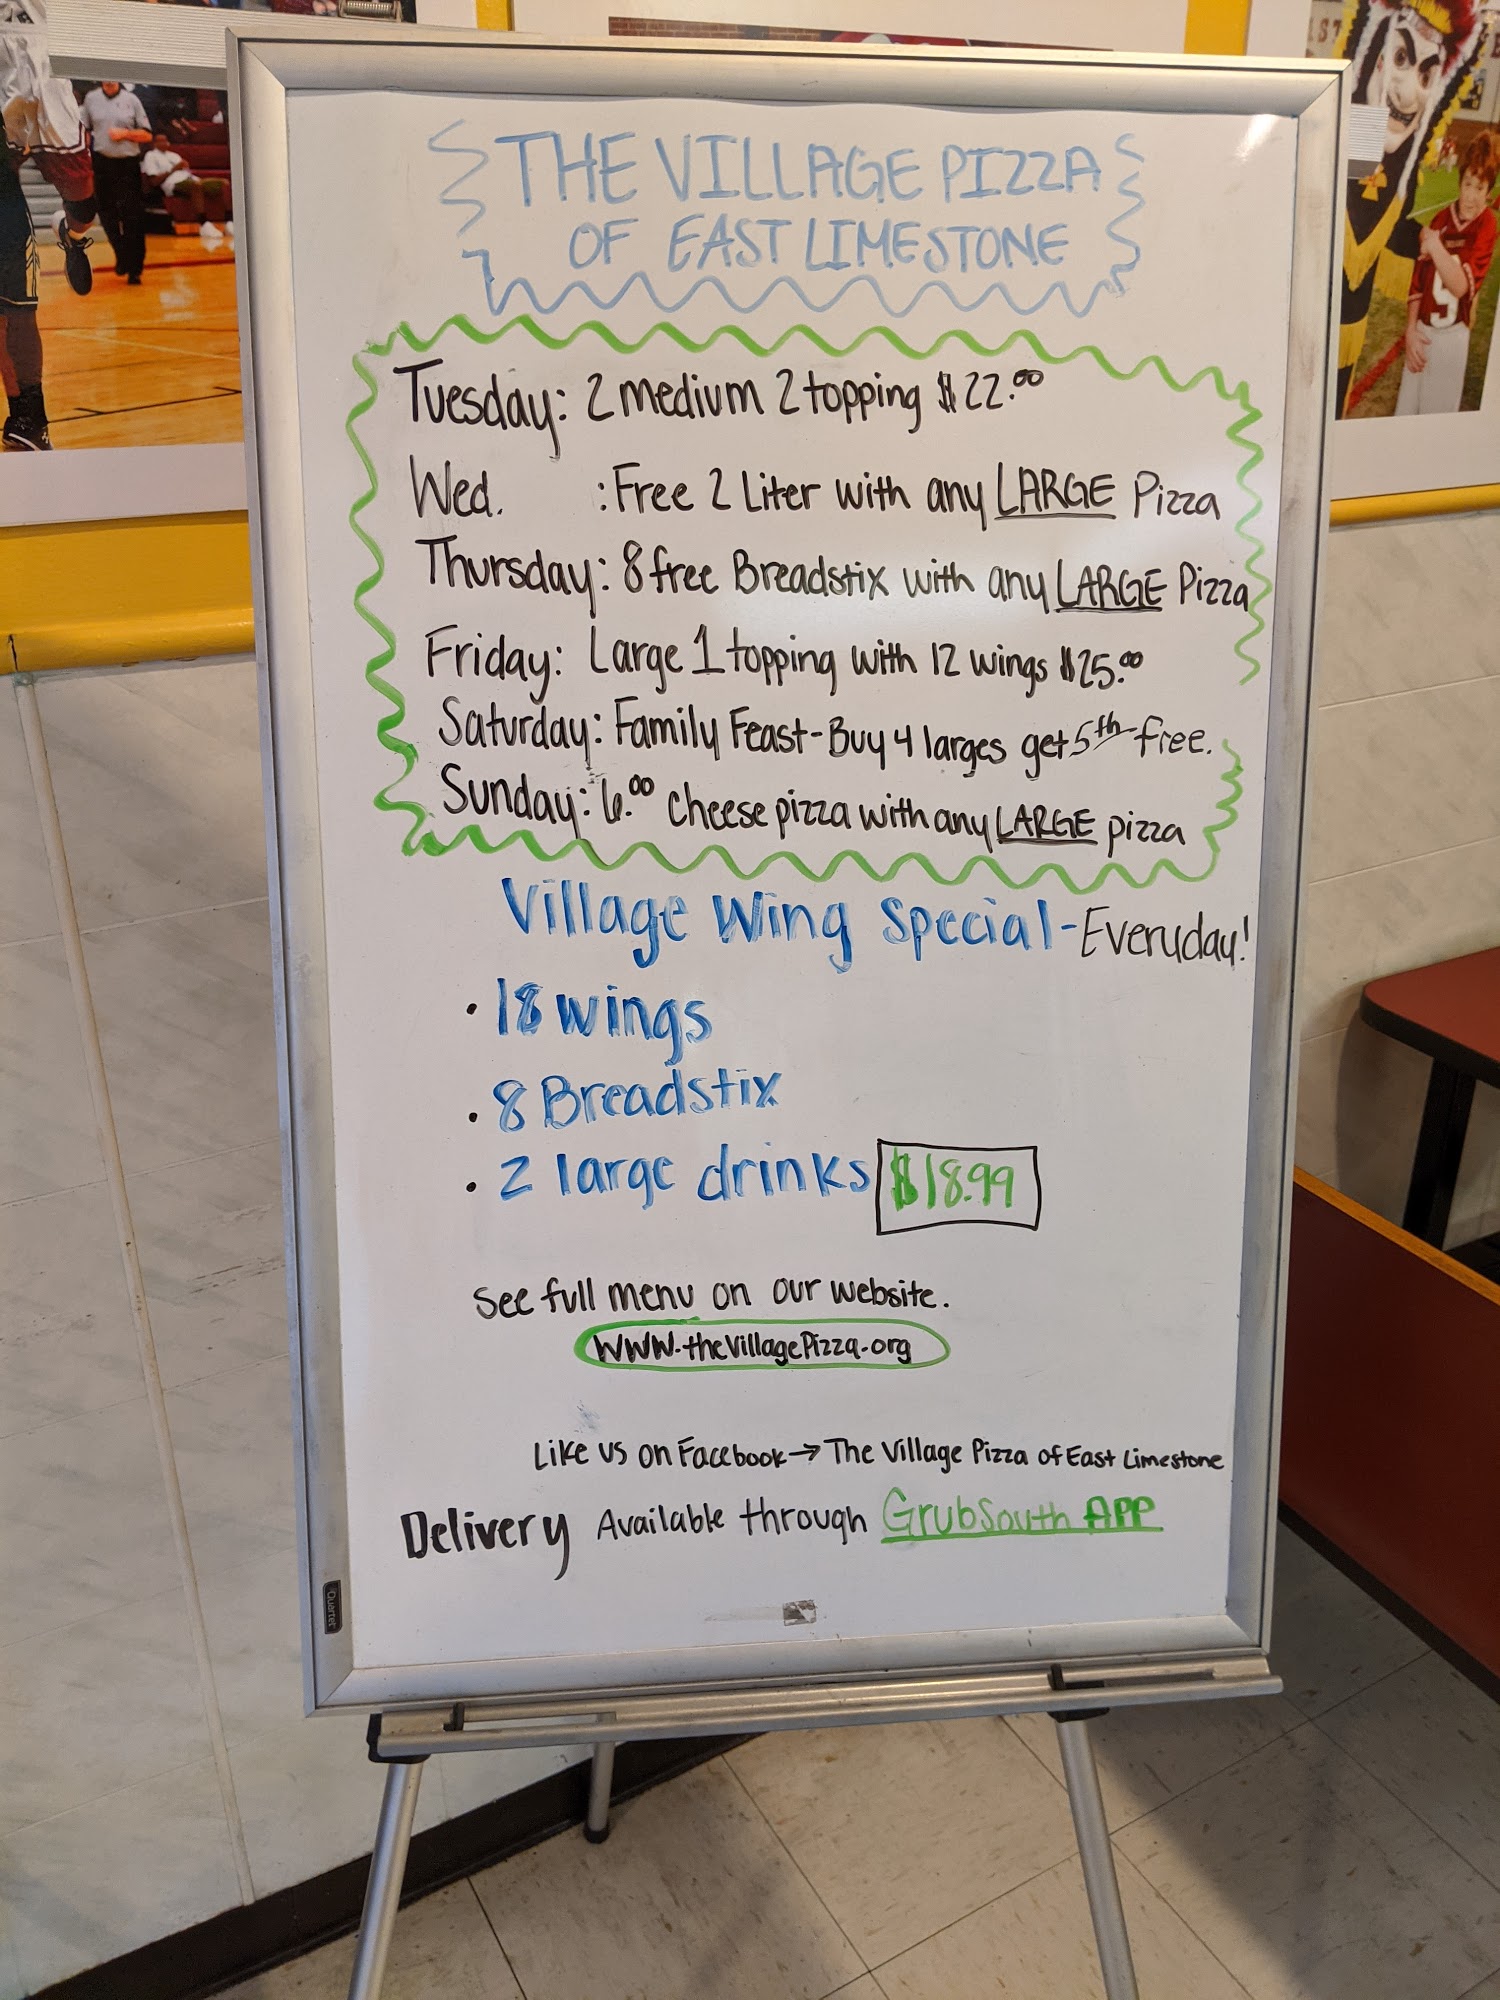 THE VILLAGE PIZZA
OF EAST LIMESTONE
Tuesday: 2 medium 2 topping $22.00
Wed. : Free 2 Liter with any LARGE Pizza
Thursday: 8 free Breadstix with any LARGE Pizza
Friday: Large 1 topping with 12 wings $25.00
Saturday: Family Feast-Buy 4 larges get 5th free.
Sunday: 6.00 cheese pizza with any LARGE pizza
Village Wing Special-Everyday!
• 18 wings
• 8 Breadstix
• 2 large drinks $18.99
See full menu on our website.
WWW.theVillagePizza.org
Like us on Facebook → The Village Pizza of East Limestone
Delivery Available through GrubSouth APP
Quartet